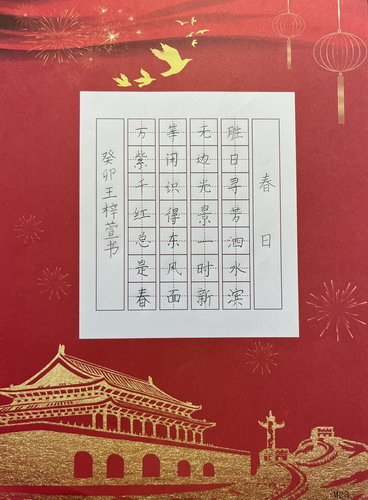 春日
胜日寻芳泗水滨
无边光景一时新
等闲识得东风面
万紫千红总是春
癸卯王梓萱书